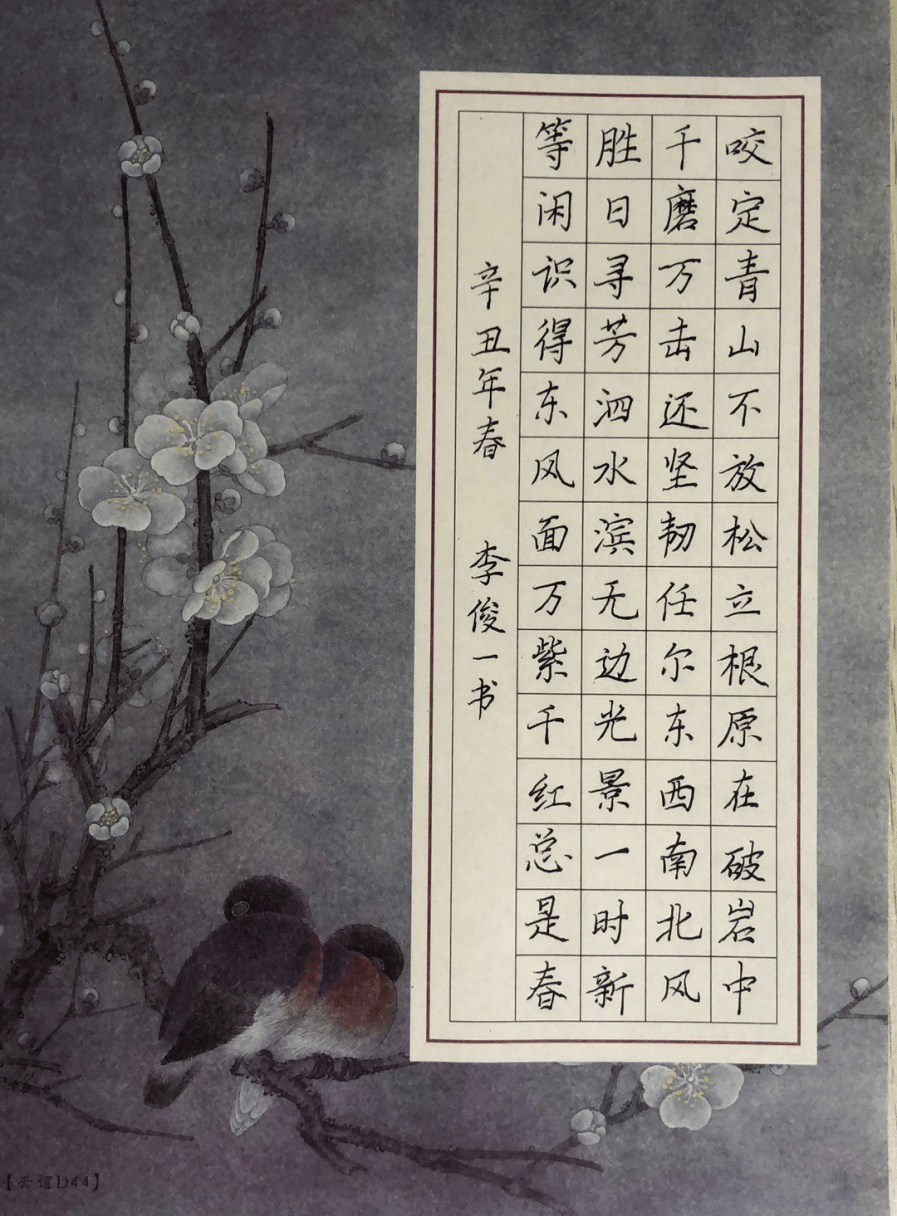 咬定青山不放松立根原在破岩中
千磨万击还坚韧任尔东西南北风
胜日寻芳泗水滨无边光景一时新
等闲识得东风面万紫千红总是春
辛丑年春 李俊一书
【云谊D44】